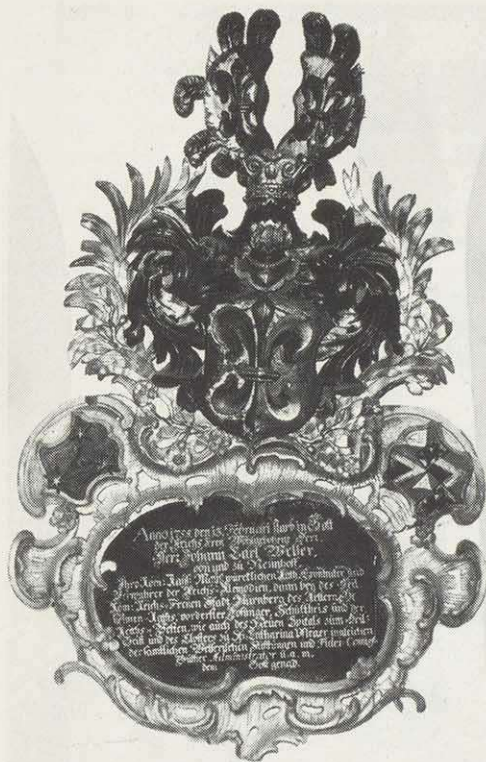 Anno 1758 den 13. Februari starb in Gott
der Reichs Frey Wohlgebohrne Herr
Herr Johann Carl Welser,
von und zu Neunhoff,
Ihro Röm: Kays: May: würcklicher Rath,
Verwahrer der Reichs-Kleinodien, dann bey des Heil:
Röm: Reichs-Freyen Stadt Nürnberg des Aeltern Ge
vorderster Losunger, Schultheis und der
Reichs-Vesten wie auch des Neuen Spitals zum Heil:
Geist und des Closters zu St: Catharina Pfleger
der sämtlichen Welserischen Stifftungen und
Administrator u.a.m.
dem Gott genad.